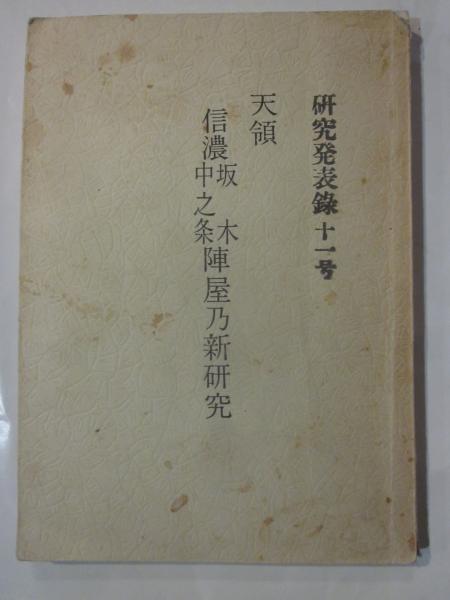 研究発表録 十一号
天領
信濃坂木中之条陣屋乃新研究